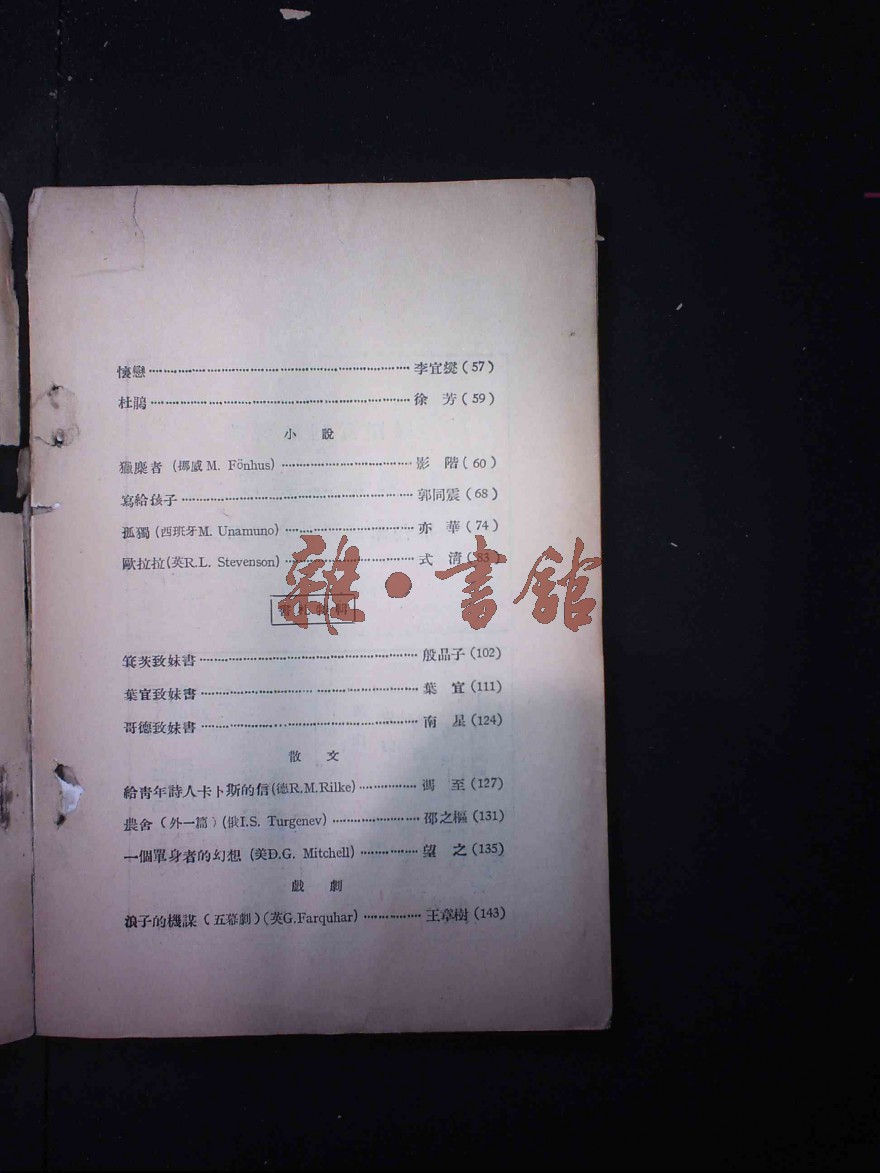 懷戀……………………………………李宜燮(57)
杜鵑……………………………………徐 芳(59)
小 說
獵麋者(挪威M. Fönhus)……………………影 階(60)
寫給孩子……………………………………郭同震(68)
孤獨(西班牙M. Unamuno)……………………亦 華(74)
歐拉拉(英R.L. Stevenson)……………………式 清(83)
雜·書館
書札特輯
箕茨致妹書……………………………………殷晶子(102)
葉宜致妹書……………………………………葉 宜(111)
哥德致妹書……………………………………南 星(124)
散 文
給靑年詩人卡卜斯的信(德R.M.Rilke)……………馮 至(127)
農舍(外一篇)(俄I.S. Turgenev)……………………邵之樞(131)
一個單身者的幻想(美D.G. Mitchell)……………望 之(135)
戲 劇
浪子的機謀(五幕劇)(英G.Farquhar)……………王章樹(143)